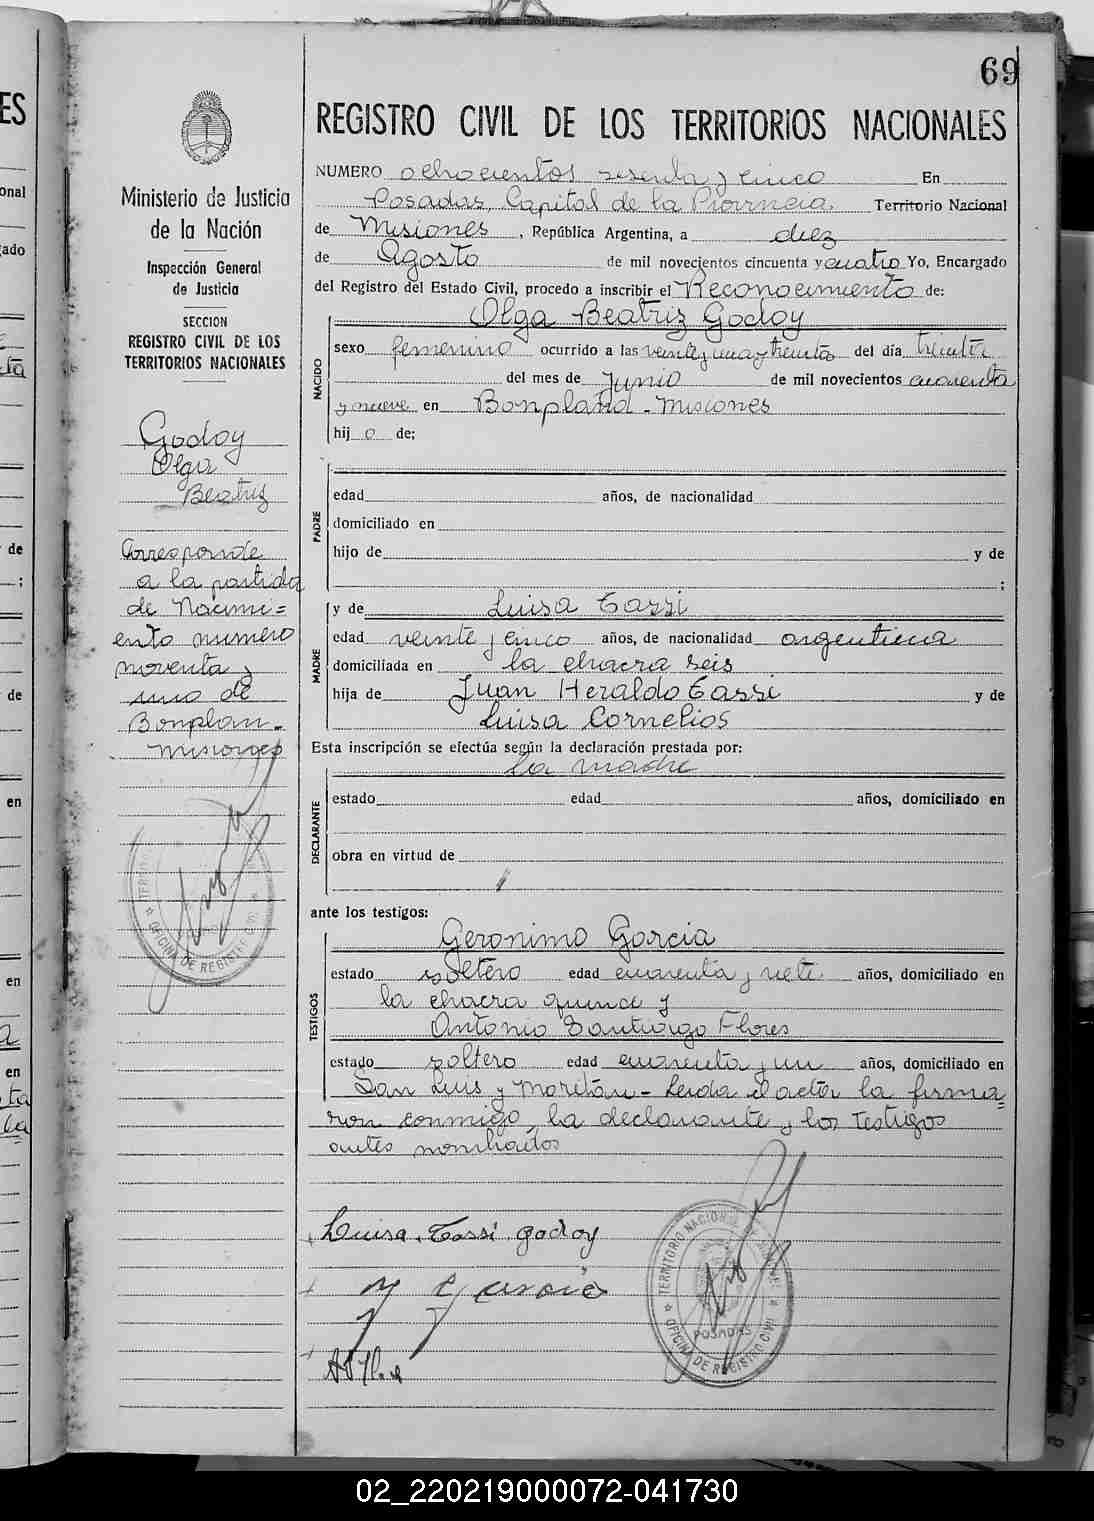 69
REGISTRO CIVIL DE LOS TERRITORIOS NACIONALES
Ministerio de Justicia
de la Nación
Inspección General
de Justicia
SECCION
REGISTRO CIVIL DE LOS
TERRITORIOS NACIONALES
Godoy
Olga
Beatriz
Corresponde
a la partida
de Nacimi=
ento numero
noventa y
uno de
Bonplan-
Misiones
NUMERO ochocientos sesenta y cinco En
Posadas, Capital de la Provincia. Territorio Nacional
de Misiones, República Argentina, a diez
de Agosto de mil novecientos cincuenta y cuatro Yo, Encargado
del Registro del Estado Civil, procedo a inscribir el Reconocimiento de:
Olga Beatriz Godoy
NACIDO
sexo femenino ocurrido a las veinte y una y treinta del día treinta
del mes de Junio de mil novecientos cuarenta
y nueve en Bonpland - Misiones
hijo de:
PADRE
edad años, de nacionalidad
domiciliado en
hijo de y de
;
MADRE
y de Luisa Tassi
edad veinte y cinco años, de nacionalidad argentina
domiciliada en la chacra seis
hija de Juan Heraldo Tassi y de
Luisa Cornelios
Esta inscripción se efectúa según la declaración prestada por:
la madre
DECLARANTE
estado edad años, domiciliado en
obra en virtud de
ante los testigos:
TESTIGOS
Geronimo Garcia
estado soltero edad cuarenta y siete años, domiciliado en
la chacra quince y
Antonio Santiago Flores
estado soltero edad cuarenta y un años, domiciliado en
San Luis y Moritán - Leida el acta la firma=
ron conmigo, la declarante y los testigos
antes nombrados
Luisa Tassi Godoy
Garcia
TERRITORIO NACIONAL DE MISIONES
POSADAS
OFICINA DE REGISTRO CIVIL
OFICINA DE REGISTRO CIVIL
02_220219000072-041730